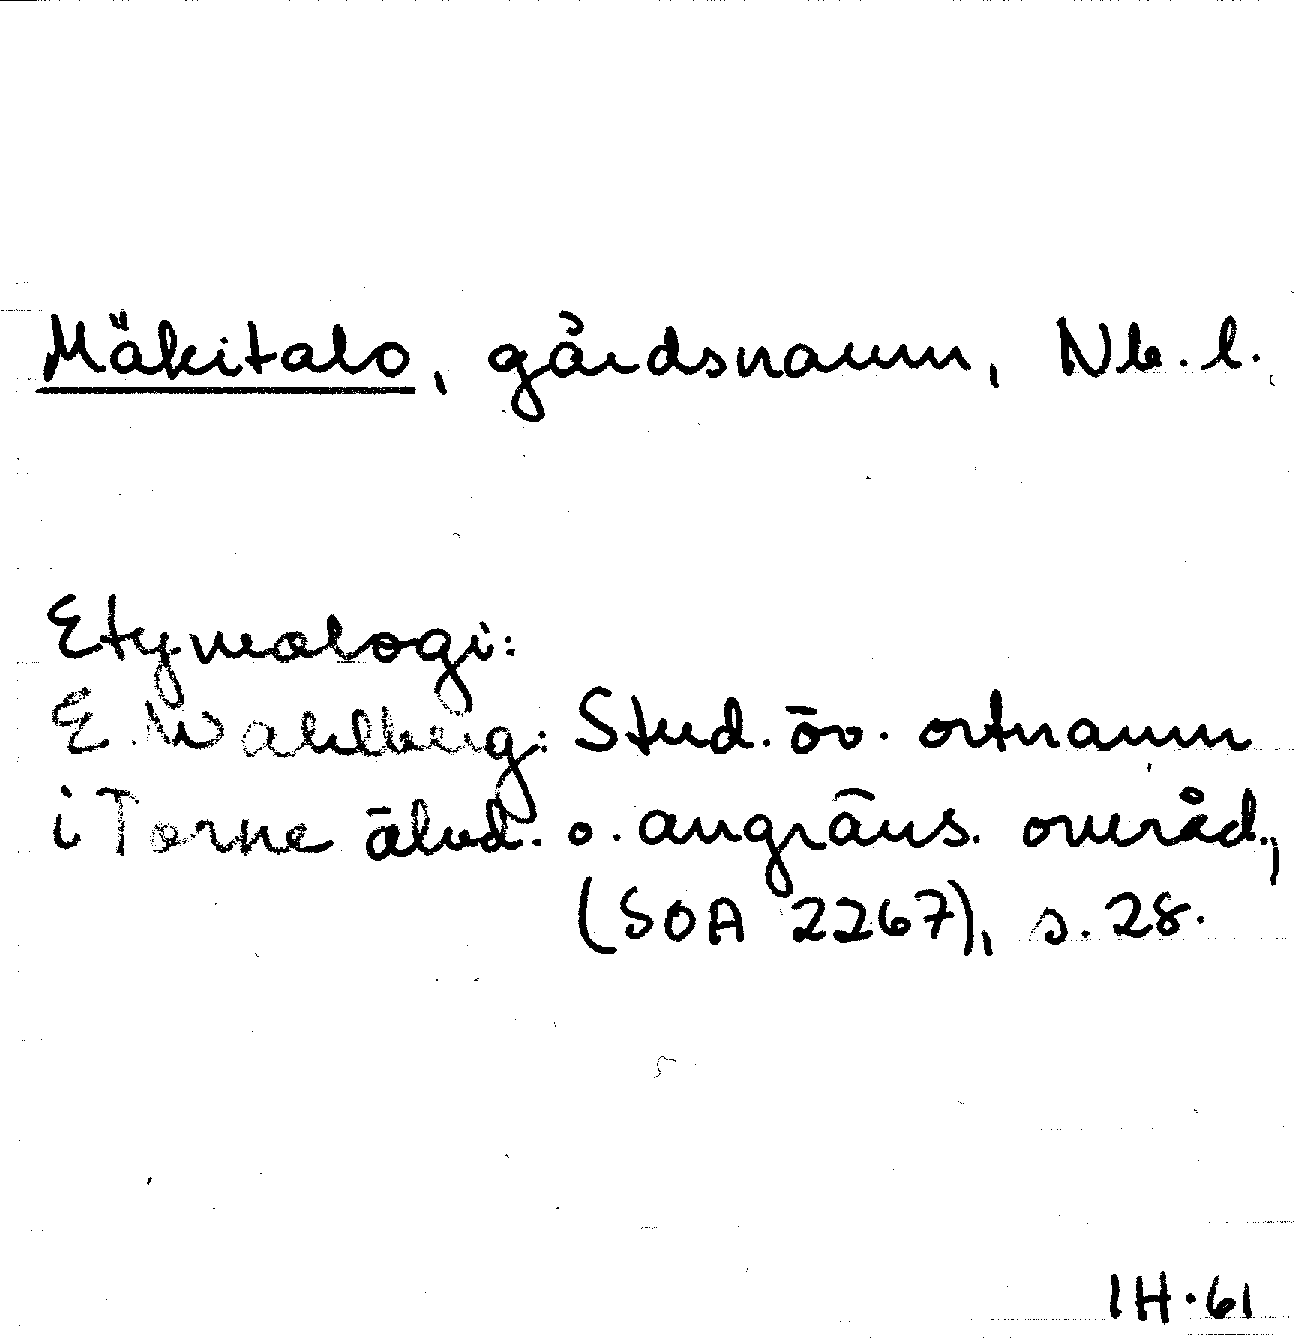 Mäkitalo, gårdsnamn, Nb. l.
Etymologi:
E. Wahlberg: Stud. öv. ortnamn
i Torne älvd. o. angräns. områd.,
(SOA 2267), s. 28.
IH. 61